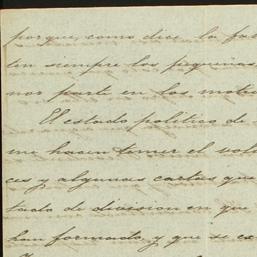 porque, como dice la fa
ten siempre los pequeños
nor parte en los moti
El estado politico de
me hacen temer el sol
ces y algunas cartas que
tado de division en que
han formado y que se es